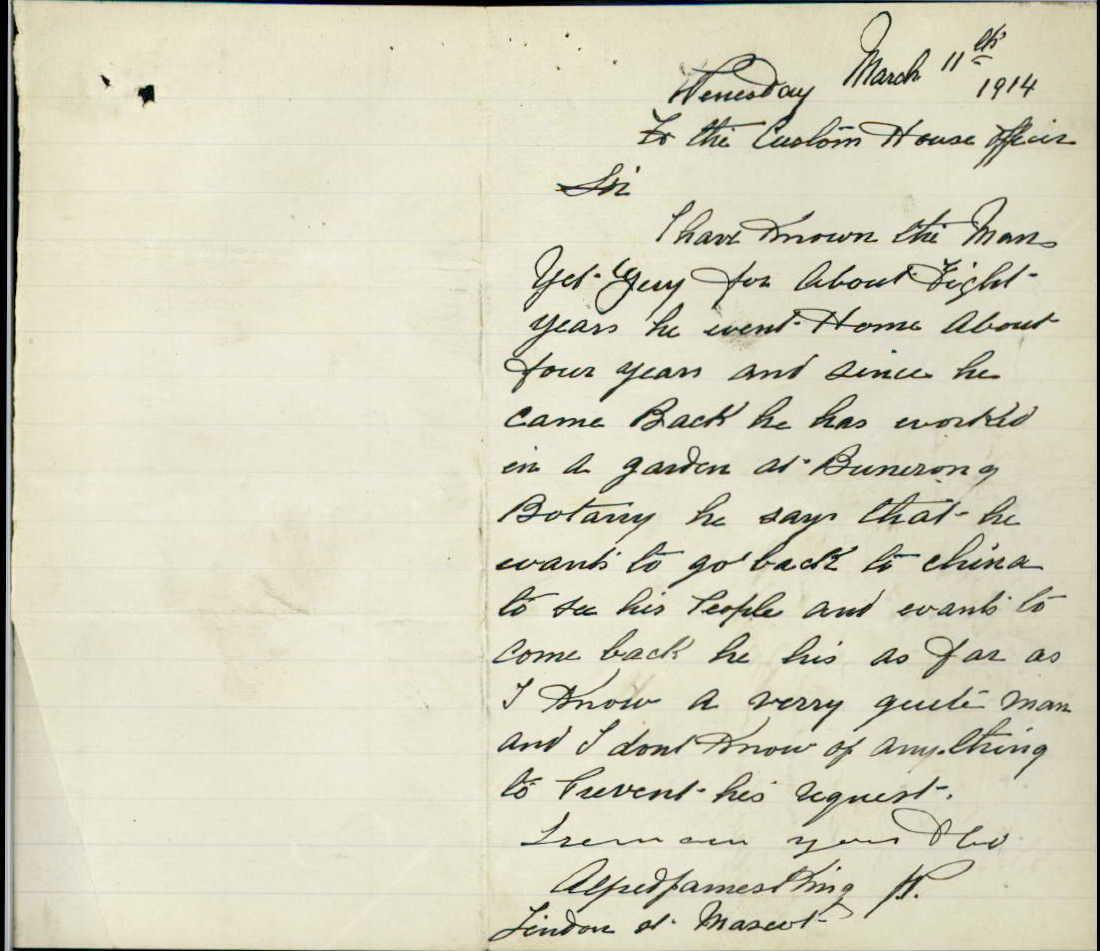 Wenesday March 11th 1914
To the Custom House officer
Sir
I have Known the Man
Yet Yery for About Eight
years he went Home About
four years and since he
came Back he has worked
in a garden at Bunerong
Botany he says that he
wants to go back to china
to see his People and wants to
come back he his as far as
I Know a verry quite man
and I dont Know of any.thing
to Prevent his request.
I remain your
Alfred James King
Lindon st Mascot